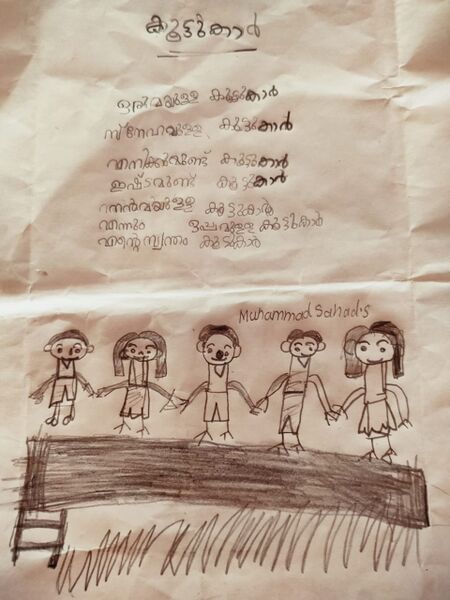 കൂട്ടുകാർ
ഒരുമയുള്ള കൂട്ടുകാർ
സ്നേഹമുള്ള കൂട്ടുകാർ
എനിക്കുമുണ്ട് കൂട്ടുകാർ
ഇഷ്ടമുണ്ട് കൂട്ടുകാർ
നന്മയുള്ള കൂട്ടുകാർ
എന്നും ഒപ്പമുള്ള കൂട്ടുകാർ
എന്റെ സ്വന്തം കൂട്ടുകാർ
Muhammad Sahad.s